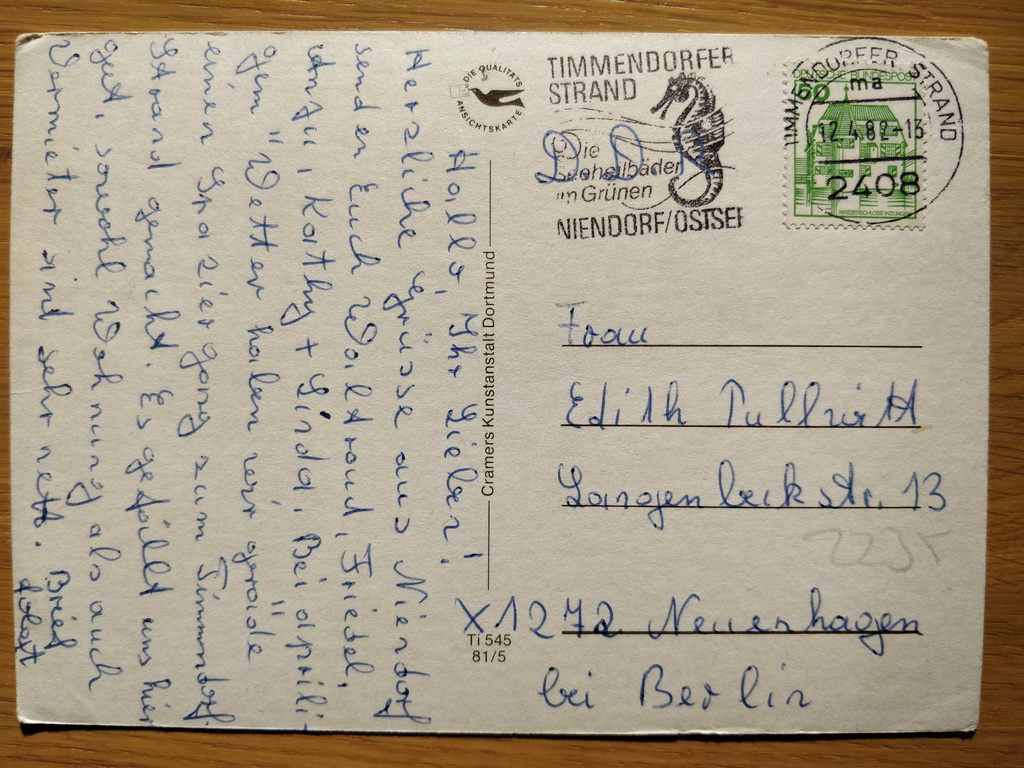 Hallo, Ihr Lieben!
Herzliche Grüsse aus Niendorf
senden Euch Waltraud, Friedel,
Kathy + Linda. Bei aprili-
gem "Wetter haben wir gerade
einen Spaziergang zum Timmendorf.
Strand gemacht. Es gefällt uns hier
gut, sowohl Wohnung als auch
Vermieter sind sehr nett. Brief
folgt
DIE QUALITÄTS
ANSICHTSKARTE
Cramers Kunstanstalt Dortmund
Ti 545
81/5
TIMMENDORFER
STRAND
Die
Seeheilbäder
im Grünen
NIENDORF/OSTSEE
DEUTSCHE BUNDESPOST
60
WASSERSCHLOSS INZLINGEN
TIMMENDORFER STRAND
ma
12.4.82-13
2408
D D R
Frau
Edith
Langenbeckstr. 13
2235
X1272 Neuenhagen
bei Berlin